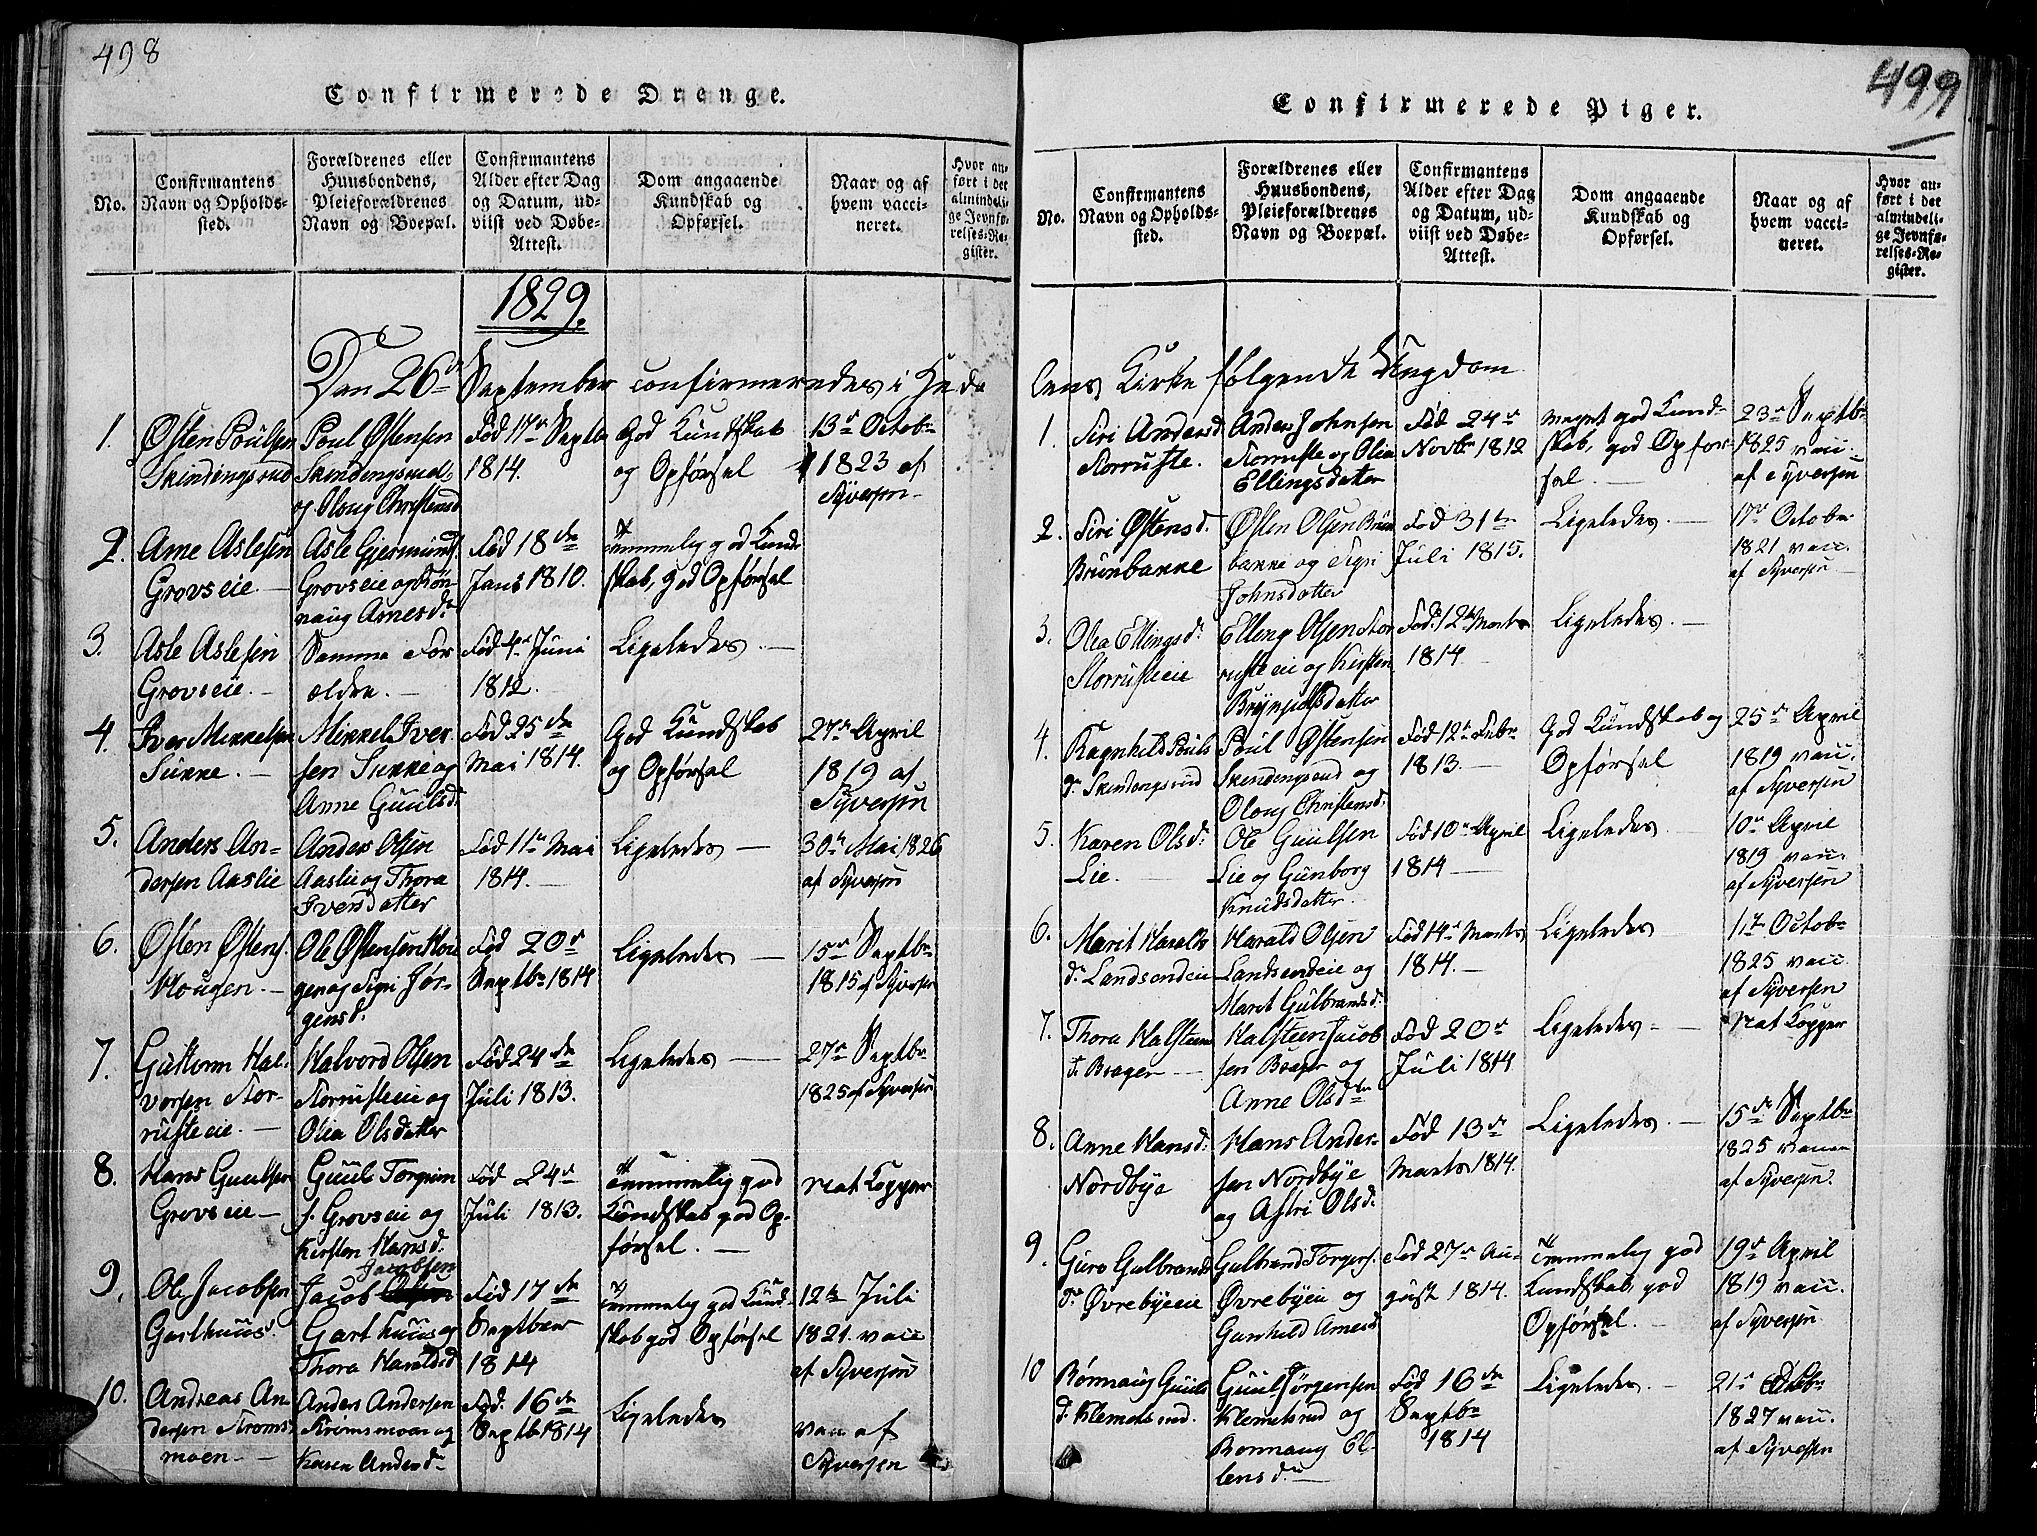 498
Confirmerede Drenge.
No.
Confirmantens
Navn og Opholds-
sted.
Forældrenes eller
Huusbondens,
Pleieforældrenes
Navn og Boepæl.
Confirmantens
Alder efter Dag
og Datum, ud-
viist ved Døbe-
Attest.
Dom angaaende
Kundskab og
Opførsel.
Naar og af
hvem vacci-
neret.
Hvor an-
ført i det
almindeli-
ge Jevnfø-
relses-Re-
gister.
1829.
Den 26de September confirmeredes i Heda
1.
Østen Poulsen
Skindingsrud
Poul Østensen
Skindengsrud
og Oloug Christensd
Fød 17de Septbr
1814.
God Kundskab
og Opførsel
13de Octobr
1823 af
Syversen
2.
Arne Aslesen
Grovseie
Asle Gjermunds
Grovseie og Røn-
naug Arnesdr
Fød 18de
Janr 1810.
Temmelig god Kund-
skab, god Opførsel
3.
Asle Aslesen
Grovseie
Samme For
ældre.
Fød 4de Juni
1812.
Ligeledes
4.
Iver Mikkelsen
Sukke.
Mikkel Iver
sen Sukke og
Anne Guulsd.
Fød 25de
Mai 1814.
God Kundskab
og Opførsel
27de April
1819 af
Syversen
5.
Anders An-
dersen Aaslie
Anders Olsen
Aaslie og Thora
Iversdatter
Fød 11te Mai
1814.
Ligeledes
30te Mai 1826
af Syversen
6.
Østen Østens.
Hougen.
Ole Østensen Hou
gen og Sigri Jør-
gensd.
Fød 20de
Septbr 1814
Ligeledes
15de Septbr
1815 af Syversen
7.
Guttorm Hal-
vorsen Stor-
rusteeie.
Halvord Olsen
Storrusteeie og
Olia Olsdatter
Fød 24de
Juli 1813.
Ligeledes
27de Septbr
1825 af Syversen
8.
Hans Guulsen
Grovseie
Guul Torgrim
s. Grovseie og
Kirsten Hansd.
Fød 24de
Juli 1813.
Temmelig god
Kundskab god Op-
førsel.
Nat Kopper
9.
Ole Jacobsen
Garthuus
Jacobsen
Jacob
Garthuus og
Thora Haraldsd
Fød 17de
Septber
1814
Temmelig god Kund-
skab god Opførsel
12te Juli
1821. vacc
af Syversen
10.
Andreas An
dersen Strøms
moen
Anders Andersen
Strømsmoen og
Karen Andersd
Fød 16de
Septbr 1814
Ligeledes
vac af
Syversen
499
Confirmerede Piger.
No.
Confirmantens
Navn og Opholds-
sted.
Forældrenes eller
Huusbondens,
Pleieforældrenes
Navn og Boepæl.
Confirmantens
Alder efter Dag
og Datum, ud-
viist ved Døbe-
Attest.
Dom angaaende
Kundskab og
Opførsel.
Naar og af
hvem vacci-
neret.
Hvor an-
ført i det
almindeli-
ge Jevnfø-
relses-Re-
gister.
lens Kirke følgende Ungdom
1.
Siri Andersd
Storruste.
Anders Johnsen
Storruste og Olia
Ellingsdatter
Fød 24de
Novbr 1812
Meget god Kund-
skab, god Opfør-
sel.
23de Septbr
1825 vacc.
af Syversen
2.
Siri Østensd.
Brunbakke
Østen Olsen Brun
bakke og Sigri
Johnsdatter
Fød 31te
Juli 1815.
Ligeledes.
17de Octobr
1821 vacc.
af Syversen
3.
Olea Ellingsd.
Storrusteeie
Elling Olsen Stor
rusteeie og Kirsten
Brynjulfsdatter
Fød. 12te Marts
1814
Ligeledes.
4.
Ragnhild Pouls
dr Skindengsrud
Poul Østensen
Skindengsrud og
Oloug Christensd.
Fød 12te Febr
1813.
God Kundskab og
Opførsel
25de April
1819 vacc.
af Syversen
5.
Karen Olsd.
Lie.
Ole Guulsen
Lie og Gunborg
Knudsdatter.
Fød 10de April
1814
Ligeledes
10de April
1819 vacc.
af Syversen
6.
Marit Haralds
dr Landsendeie
Harald Olsen
Landsendeie og
Marit Gulbrandsd.
Fød 14de Marts
1814.
Ligeledes
11te Octobr
1825 vacc
af Syversen
7.
Thora Halsteens
d. Brager
Halsteen Jacob
sen Brager og
Anne Olsdtr
Fød 20de
Juli 1814
Ligeledes
Nat Kopper
8.
Anne Hansd.
Nordbye
Hans Ander-
sen Nordbye
og Astri Olsd.
Fød 13de
Marts 1814.
Ligeledes.
15de Septbr
1825 vacc
af Syversen.
9.
Guro Gulbrands
dr Øvrebyeeie
Gulbrand Torgers.
Øvrebyeie og
Gunhild Arnesd
Fød 27de Au-
gust 1814.
Temmelig god
Kundskab, god
Opførsel.
19de April
1819 vacc.
af Syversen
10
Rønnaug Guuls
d. Klemetsrud.
Guul Jørgensen
Klemetsrud og
Rønnaug El-
lensdr
Fød 16de
Septbr
1814
Ligeledes
21de Octbr
1827 vacc.
af Syversen